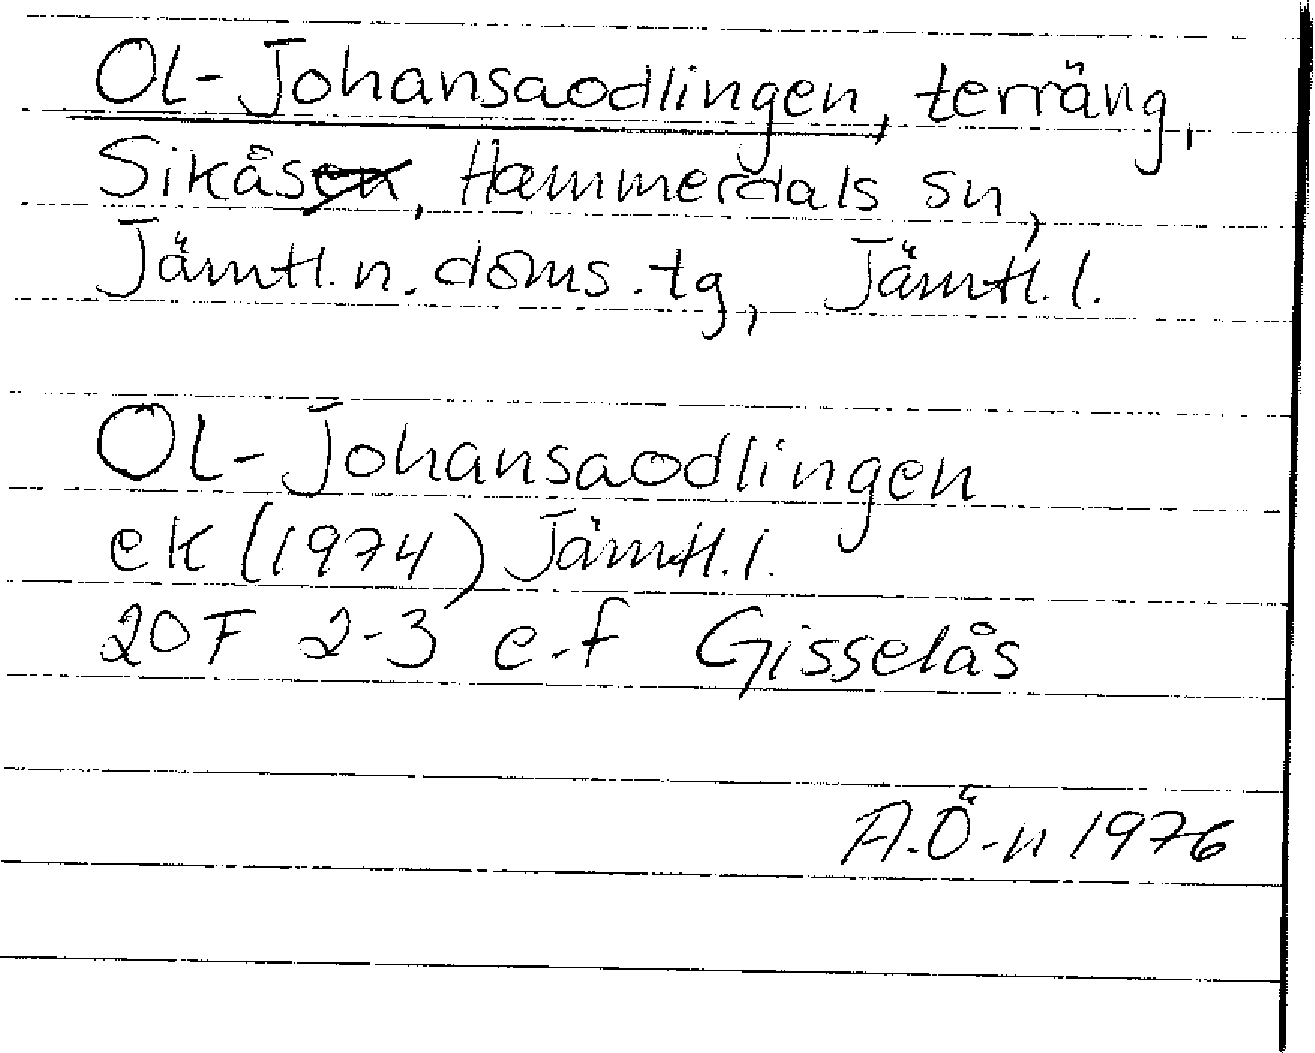 OL-Johansaodlingen, terräng,
Sikås, Hammerdals sn,
Jämtl. n. doms. tg, Jämtl. l.
OL-Johansaodlingen
ek (1974) Jämtl. l.
20F 2-3 e-f Gisselås
A.Ö-n 1976